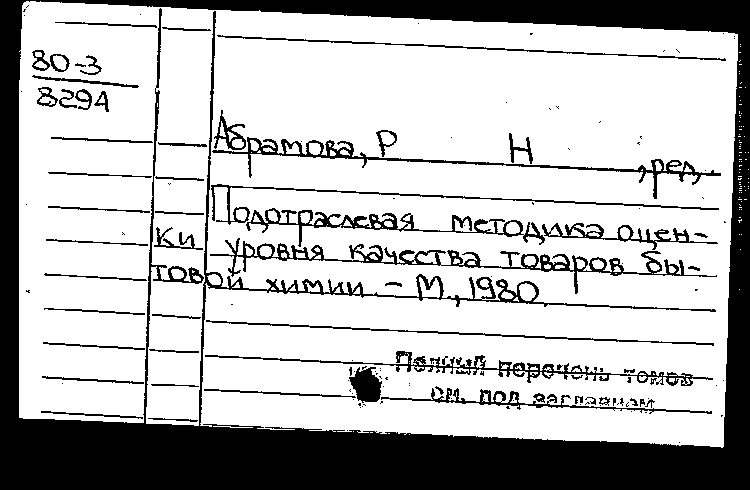 80-3
8294
Абрамова, Р Н , ред.
Подотраслевая методика оцен-
ки уровня качества товаров бы-
товой химии. - М., 1980
Полный перечень томов
см. под заглавием